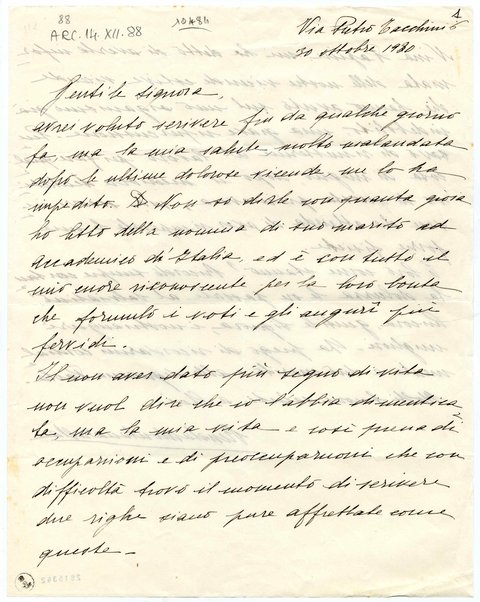 88
10484
ARC. 14. XII. 88
1
Via Pietro Tacchini 6
30 ottobre 1930
Gentile Signora,
avrei voluto scrivere fin da qualche giorno
fa, ma la mia salute molto malandata
dopo le ultime dolorose vicende me lo ha
impedito. Non so dirle con quanta gioia
ho letto della nomina di suo marito ad
accademico d'Italia, ed è con tutto il
mio cuore riconoscente per la loro bontà
che formulo i voti e gli auguri più
fervidi.
Il non aver dato più segno di vita
non vuol dire che io l'abbia dimentica-
ta, ma la mia vita è così piena di
occupazioni e di preoccupazioni che con
difficoltà trovo il momento di scrivere
due righe siano pure affrettate come
queste –